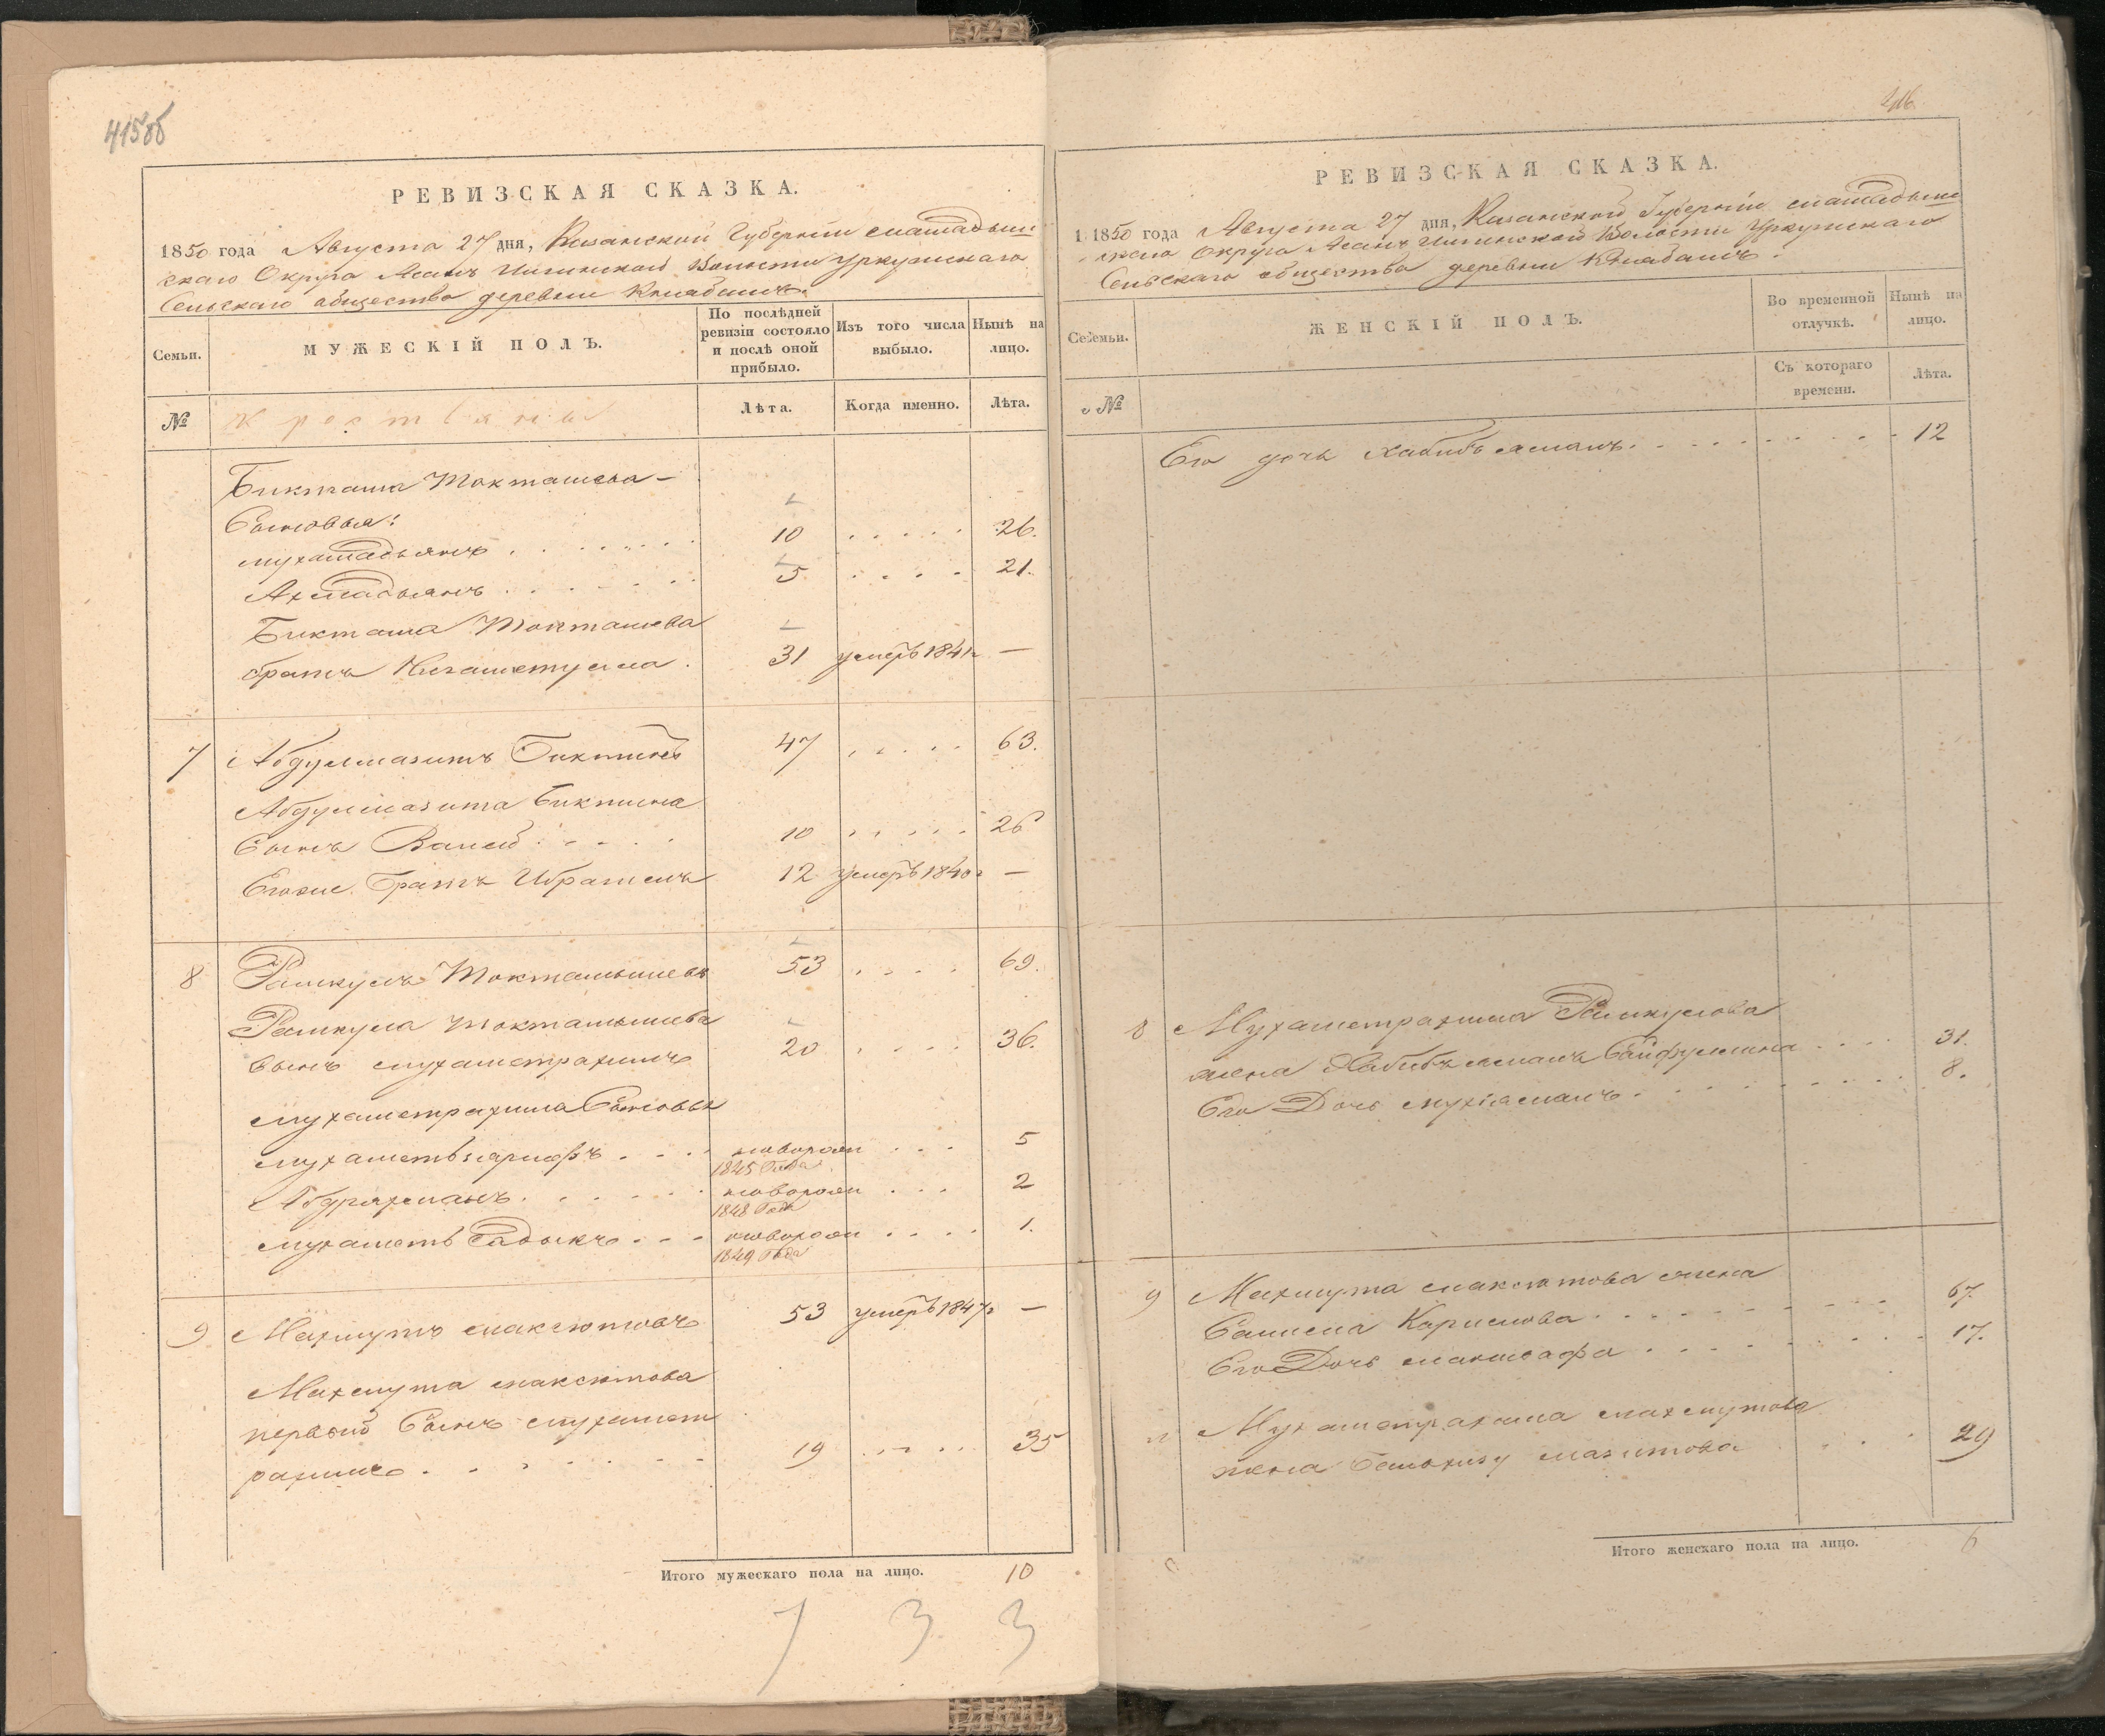 415об
РЕВИЗСКАЯ СКАЗКА.
1850 года Августа 27 дня, Казанской Губернии мамадыш
скаго Округа Асанъ Илгинской Волости Уркушскаго
Сельскаго общества деревни
Семьи.
МУЖЕСКІЙ ПОЛЪ.
По послѣдней ревизіи состояло и послѣ оной прибыло.
Изъ того числа выбыло.
Нынѣ на лицо.
№
Крестьяне
Лѣта.
Когда именно.
Лѣта.
Бикташа Токташева
Сыновья:
мухамадьянъ 10 26.
Ахмадьянъ 5 21.
Бикташа Токташева
братъ Нигаметулла 31 умеръ 1841г —
7 Абдулмазитъ Биктинъ 47 63.
Абдулмазита Биктина
Сынъ Валей 10 26
Егоже братъ Ибрагимъ 12 умеръ 1840г —
8 Рамкулъ Токтамышевъ 53 69.
Рамкула Токтамышева
сынъ мухаметрахимъ 20 36.
мухаметрахима Сыновья
мухаметьзарифъ новорожд 5
1845 Года
Абдрахманъ новорожд 2
1848 Года
мухаметь Садыкъ новорожд 1.
1849 Года
9 Махмутъ максютовъ 53 умеръ 1847г —
Махмута максютова
первый Сынъ мухамет
рахимъ 19 35
Итого мужескаго пола на лицо. 10
1 3 3
416
РЕВИЗСКАЯ СКАЗКА.
1850 года Августа 27 дня, Казанской Губернии мамадыш
скаго Округа Асанъ Илгинской Волости Уркушскаго
Сельскаго общества деревни
Семьи.
ЖЕНСКІЙ ПОЛЪ.
Во временной отлучкѣ.
Нынѣ на лицо.
№
Съ котораго времени.
Лѣта.
Его дочь Хабибъ 12
8 Мухаметрахима Рамкулова
жена Хабибъ Сайфуллина 31.
Его Дочь 8.
9 Махмута максютова жена
Салима Каримова 67.
Его Дочь 17.
Мухаметрахима махмутова
жена мазитова 29
Итого женскаго пола на лицо. 6